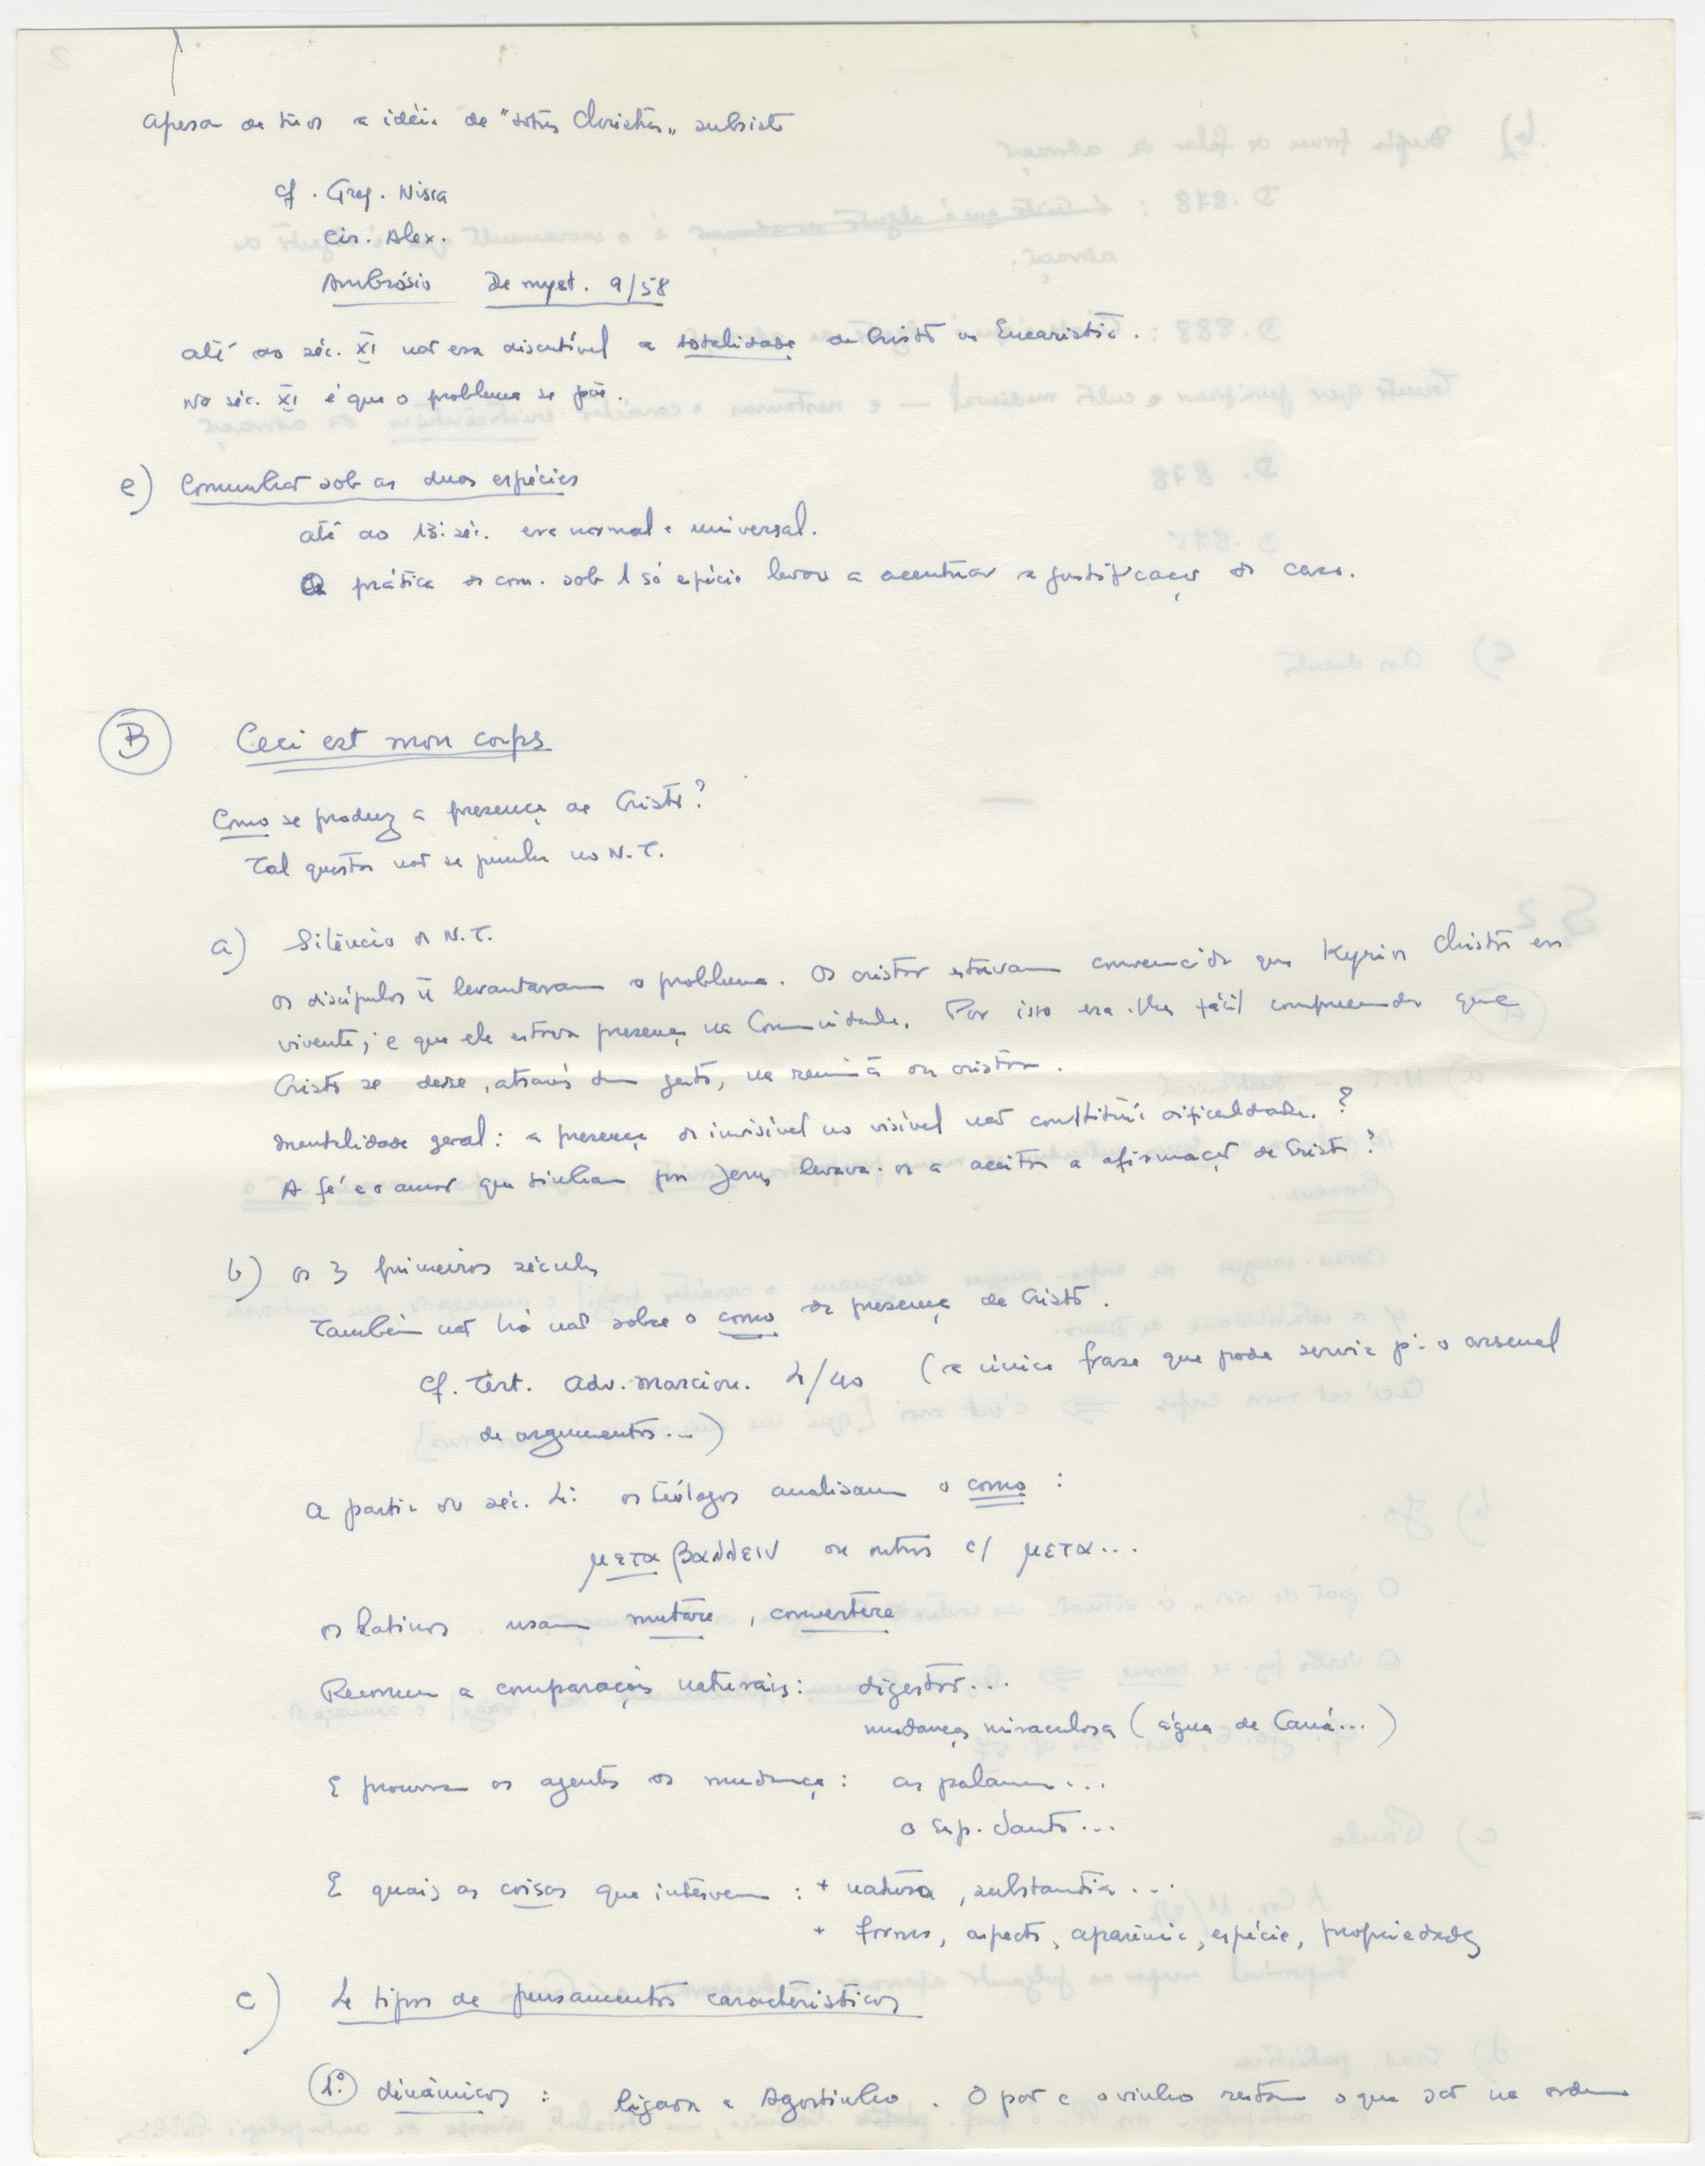 apesar de tudo a idéia de "totus Christus" subsiste
cf. Greg. Nissa
Cir. Alex.
Ambrósio De myst. 9/58
até ao séc. XI não era discutível a totalidade de Cristo na Eucaristia.
No séc. XI é que o problema se põe.
e) Comunhão sob as duas espécies
até ao 13º séc. era normal e universal.
A prática da com. sob 1 só espécie levou a acentuar a justificação do caso.
B Ceci est mon corps
Como se produz a presença de Cristo?
Tal questão não se punha no N.T.
a) Silêncio do N.T.
Os discípulos ñ levantaram o problema. Os cristãos estavam convencidos que Kyrios Christos era
vivente; e que ele estava presença na Comunidade. Por isso era-lhes fácil compreender que
Cristo se desse, através dum gesto, na reunião dos cristãos.
Mentalidade geral: a presença do invisível no visível não constitui dificuldade. ?
A fé e o amor que tinham por Jesus levava-os a aceitar a afirmação de Cristo?
b) Os 3 primeiros séculos
Também não há nada sobre o como da presença de Cristo.
Cf. Tert. Adv. Marcion. 4/40 (a única frase que pode servir pª o arsenal
de argumentos...)
A partir do séc. 4º os teólogos analisam o como:
μεταβαλλειν ou outros c/ μετα...
os latinos usam mutare, convertere
Recorrem a comparações naturais: digestão...
mudança miraculosa (água de Caná...)
E procuram os agentes da mudança: as palavras...
o Esp. Santo...
E quais as coisas que intervêm: + natura, substantia...
+ forma, aspecto, aparência, espécie, propriedades
c) 4 tipos de pensamentos característicos
1º dinâmicos: ligada a Agostinho. O pão e o vinho restam o que são na ordem